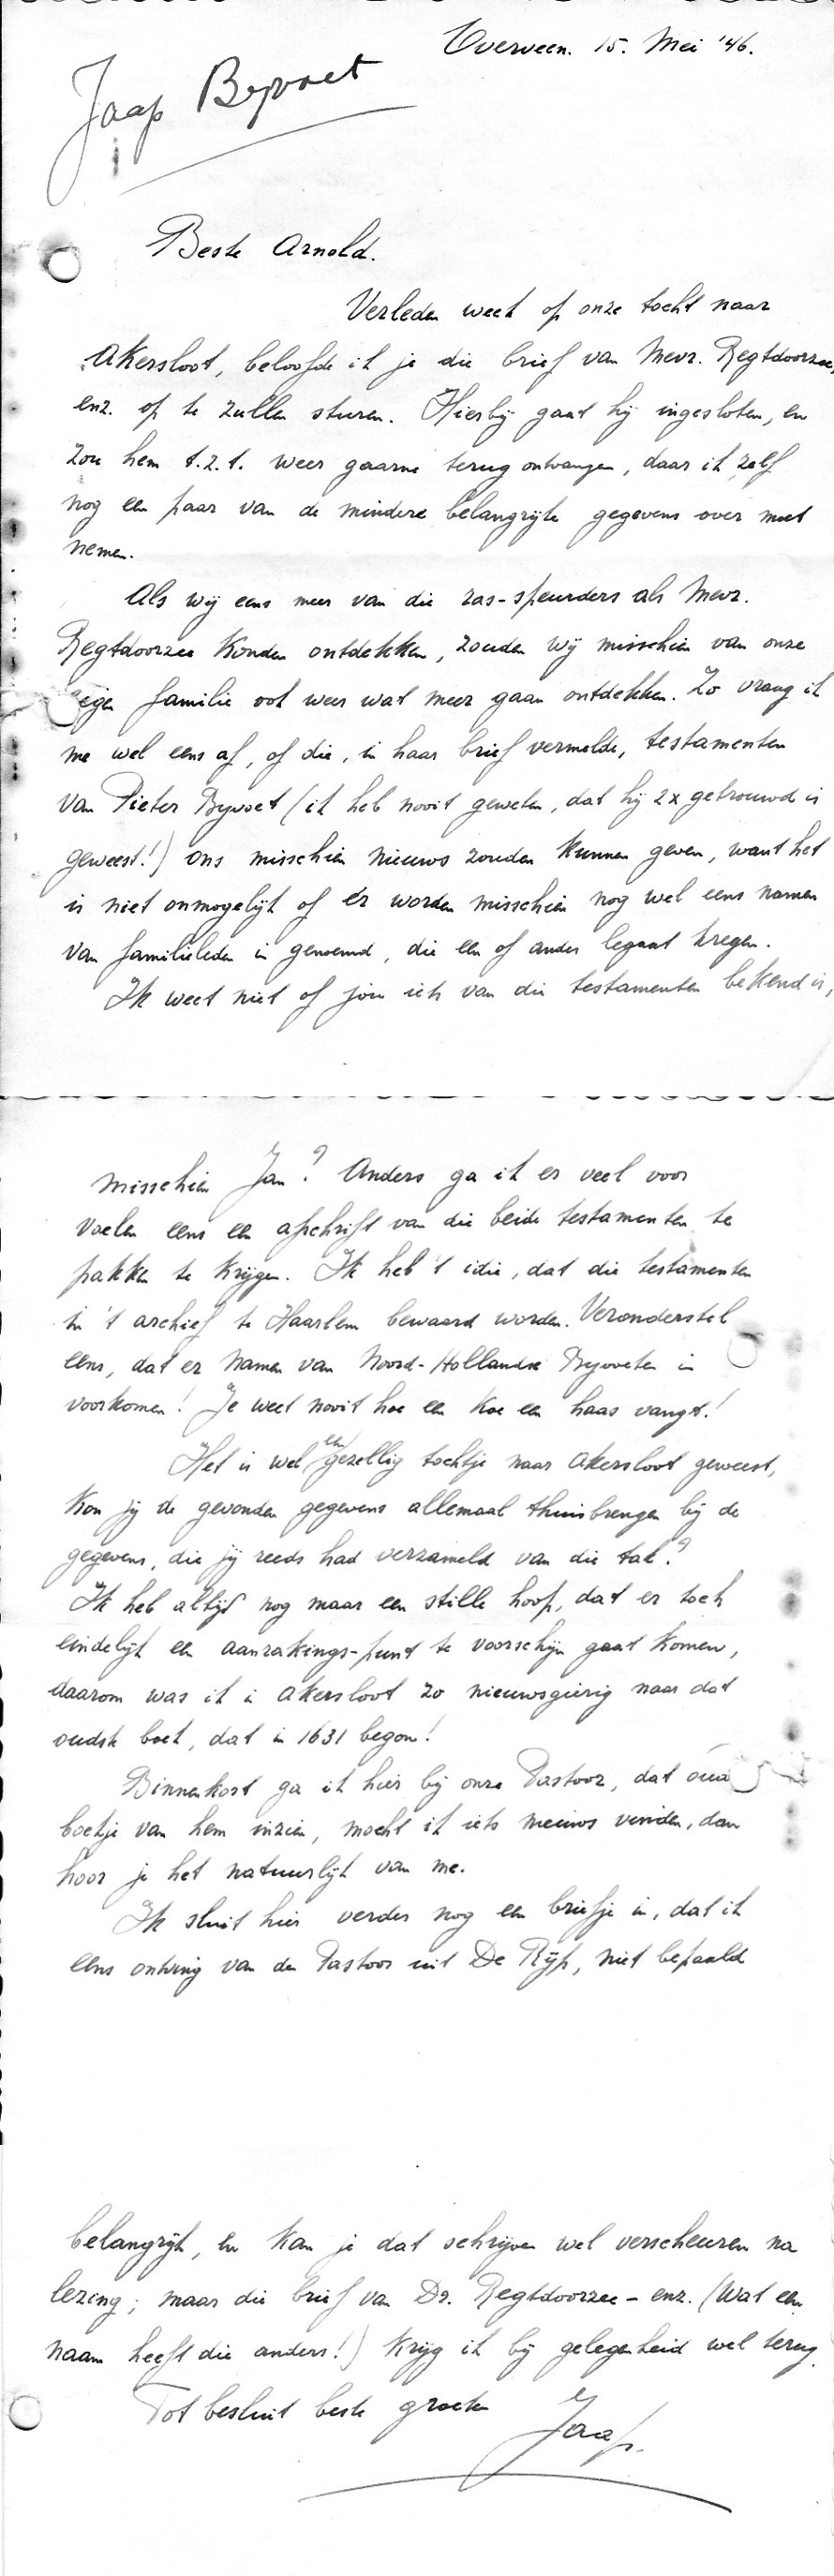 Overveen. 15. Mei '46.
Jaap Bijvoet
Beste Arnold.
Verleden week op onze tocht naar
Akersloot, beloofde ik je die brief van Mevr. Regtdoorzee,
enz. op te zullen sturen. Hierbij gaat hij ingesloten, en
zou hem t.z.t. weer gaarne terug ontvangen, daar ik zelf
nog een paar van de mindere belangrijke gegevens over moet
nemen.
Als wij eens meer van die ras-speurders als Mevr.
Regtdoorzee konden ontdekken, zouden wij misschien van onze
eigen familie ook weer wat meer gaan ontdekken. Zo vraag ik
me wel eens af, of die, in haar brief vermelde, testamenten
van Pieter Byvoet (ik heb nooit geweten, dat hij 2x getrouwd is
geweest!) ons misschien nieuws zouden kunnen geven, want het
is niet onmogelijk of er worden misschien nog wel eens namen
van familieleden in genoemd, die een of ander legaat kregen.
Ik weet niet of jou iets van die testamenten bekend is,
misschien Jan? Anders ga ik er veel voor
voelen eens een afschrift van die beide testamenten te
pakken te krijgen. Ik heb 't idie, dat die testamenten
in 't archief te Haarlem bewaard worden. Veronderstel
eens, dat er namen van Noord-Hollandse Byvoeten in
voorkomen! Je weet nooit hoe een koe een haas vangt!
Het is wel een gezellig tochtje naar Akersloot geweest,
kon jij de gevonden gegevens allemaal thuisbrengen bij de
gegevens, die jij reeds had verzameld van die tak?
Ik heb altijd nog maar een stille hoop, dat er toch
eindelijk een aanrakings-punt te voorschijn gaat komen,
daarom was ik in Akersloot zo nieuwsgierig naar dat
oudste boek, dat in 1631 begon!
Binnenkort ga ik hier bij onze Pastoor, dat oude
boekje van hem inzien, mocht ik iets nieuws vinden, dan
hoor je het natuurlijk van me.
Ik sluit hier verder nog een briefje in, dat ik
eens ontving van den Pastoor uit De Rijp, niet bepaald
belangrijk, en kan je dat schrijven wel verscheuren na
lezing; maar die brief van Dr. Regtdoorzee - enz. (Wat een
naam heeft die anders!) krijg ik bij gelegenheid wel terug.
Tot besluit beste groeten
Jaap.